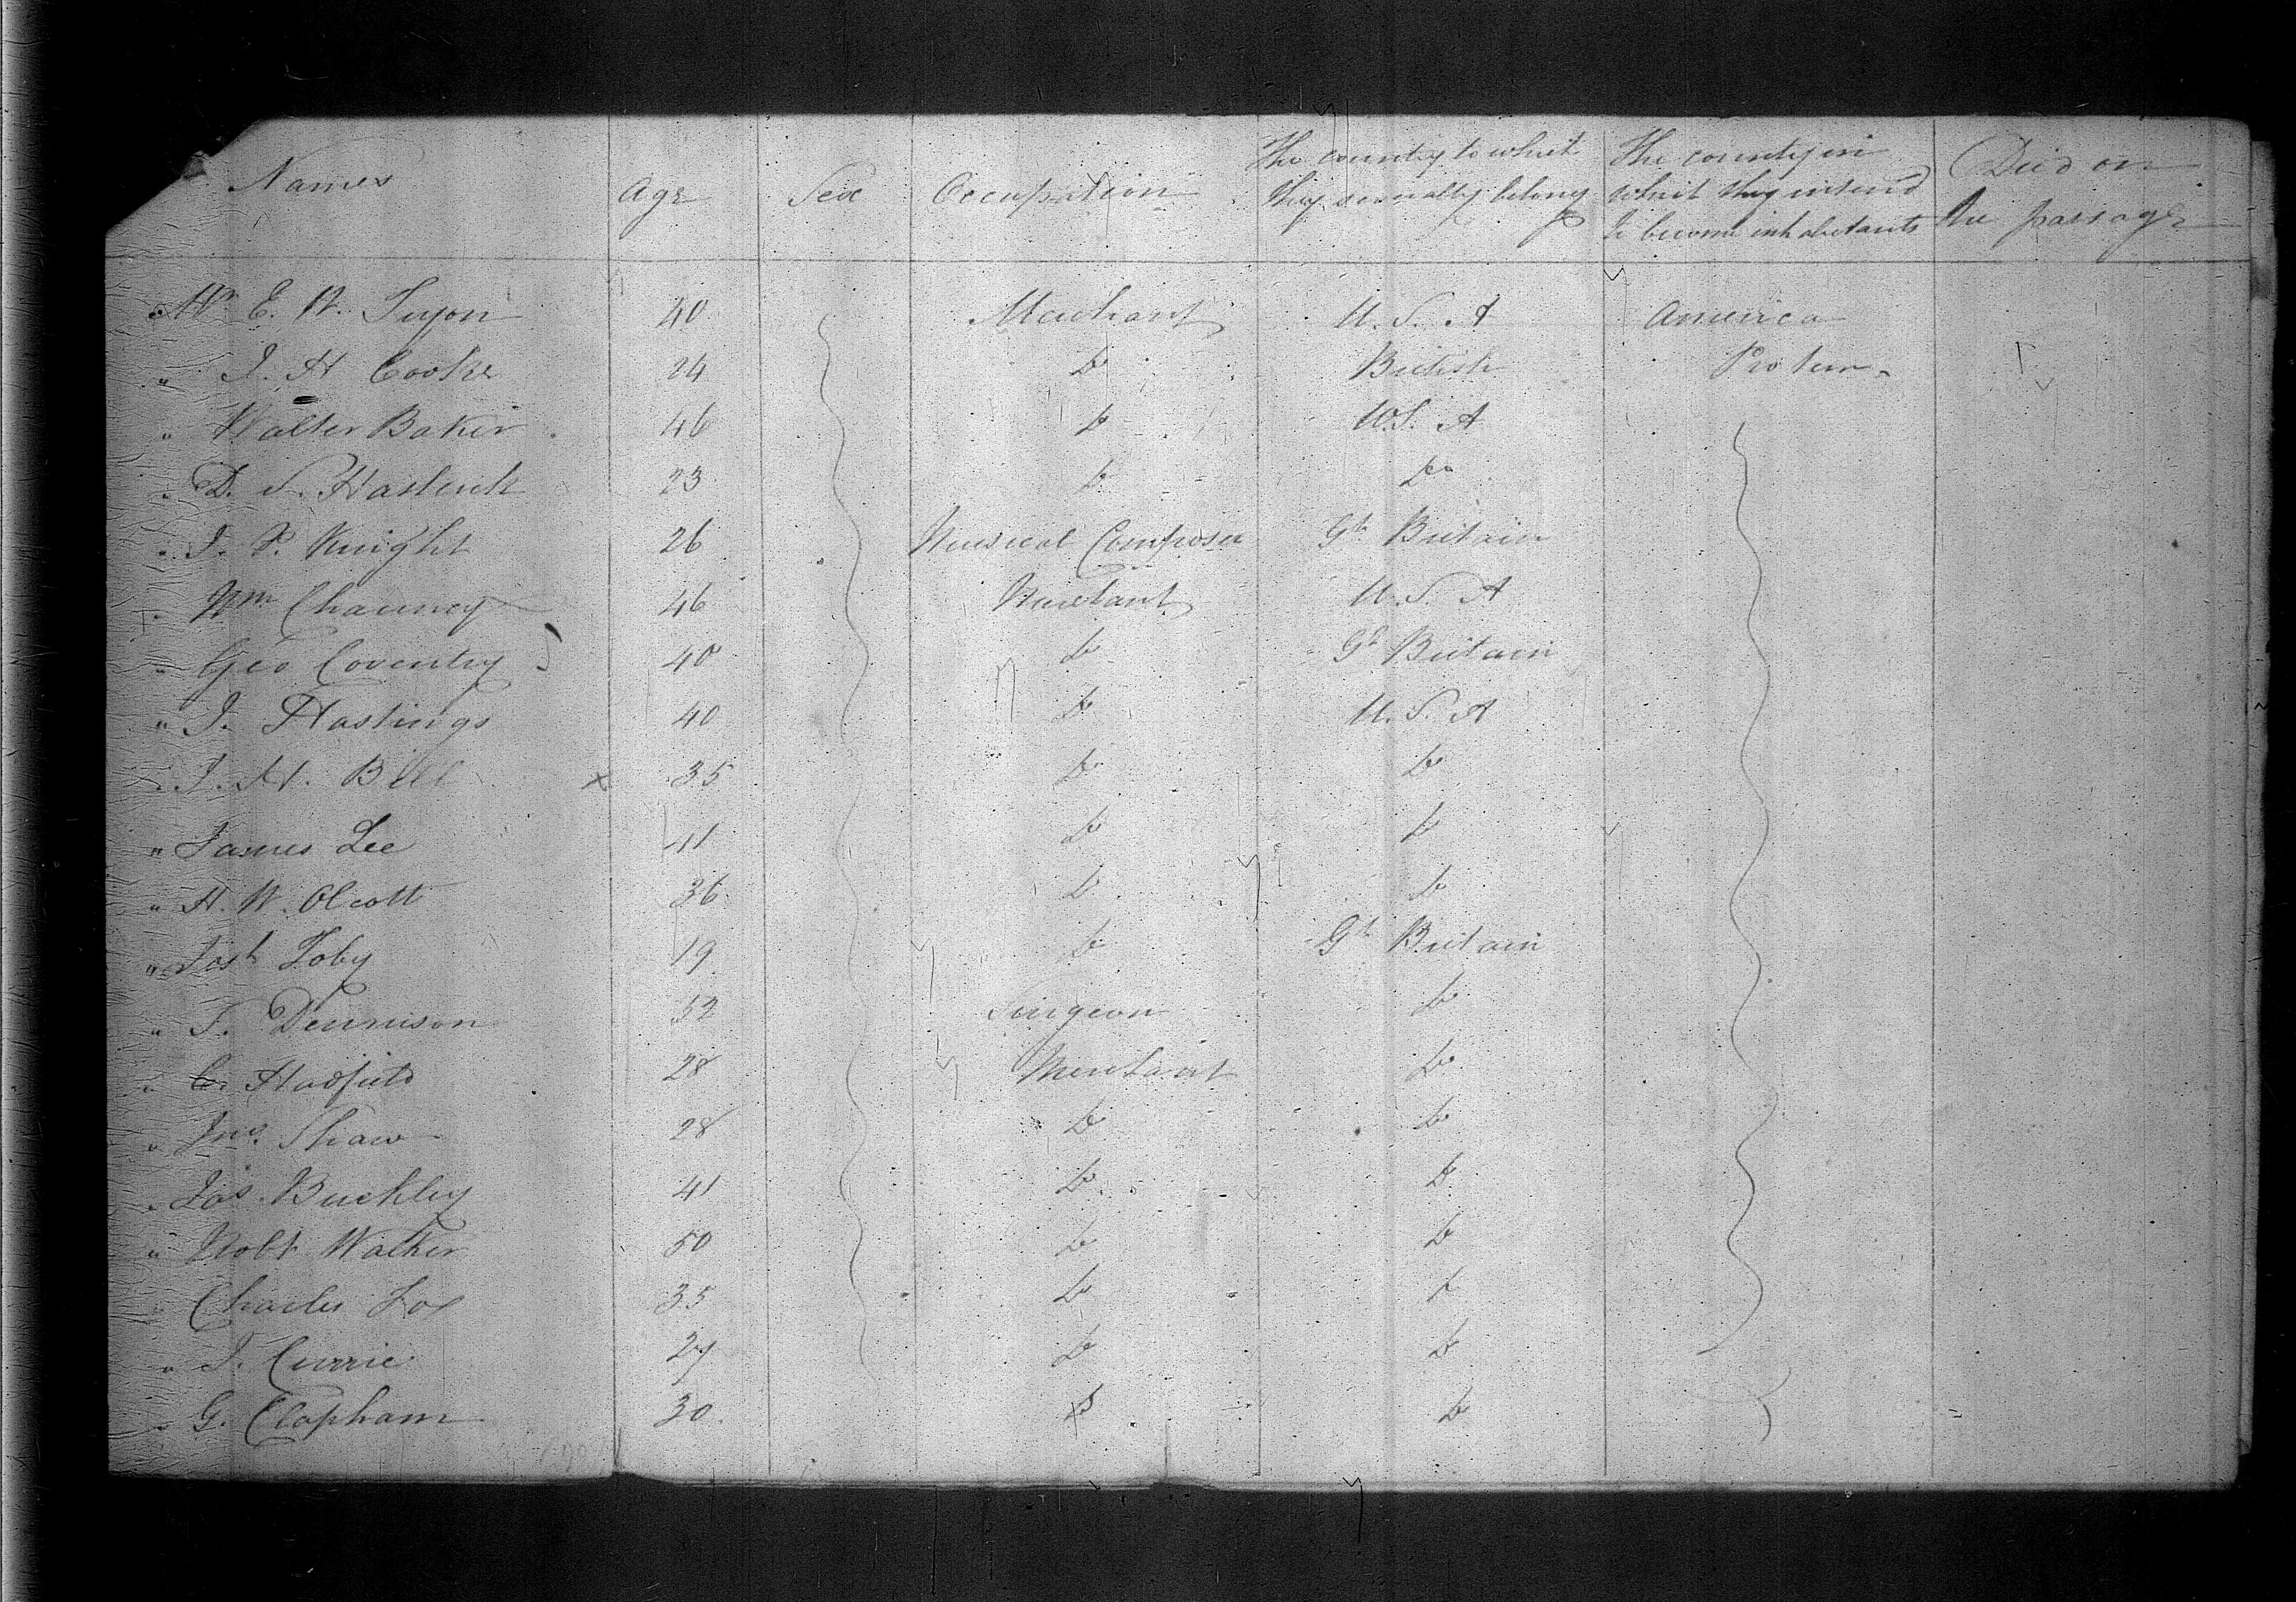 Names Age Sex Occupation The country to which they severally belong The country in which they intend to become inhabitants Died on the passage
Mr E. W. 40 Merchant U. S. A America
" J. H Cooke 24 Do British Pro tem
" Walter Baker 46 Do U.S. A
" D. S. 23 Do Do
" J. P. Knight 26 Musical Composer Gt Britain
" Wm Chauncey 46 Merchant U. S. A
" Geo Coventry 40 Do Gt Britain
" J. Hastings 40 Do U. S. A
" J. H. Bill 35 Do Do
" James Lee 41 Do Do
" H. W. Olcott 36 Do Do
" Josh Toby 19 Do Gt Britain
" T. Dennison 52 Surgeon Do
" Hadfield 28 Merchant Do
" Jno. Shaw 28 Do Do
" Jas. Buckley 41 Do Do
" Robt Walker 50 Do Do
" Charles Fox 35 Do Do
" J. Currie 27 Do Do
" G. Clapham 30 Do Do